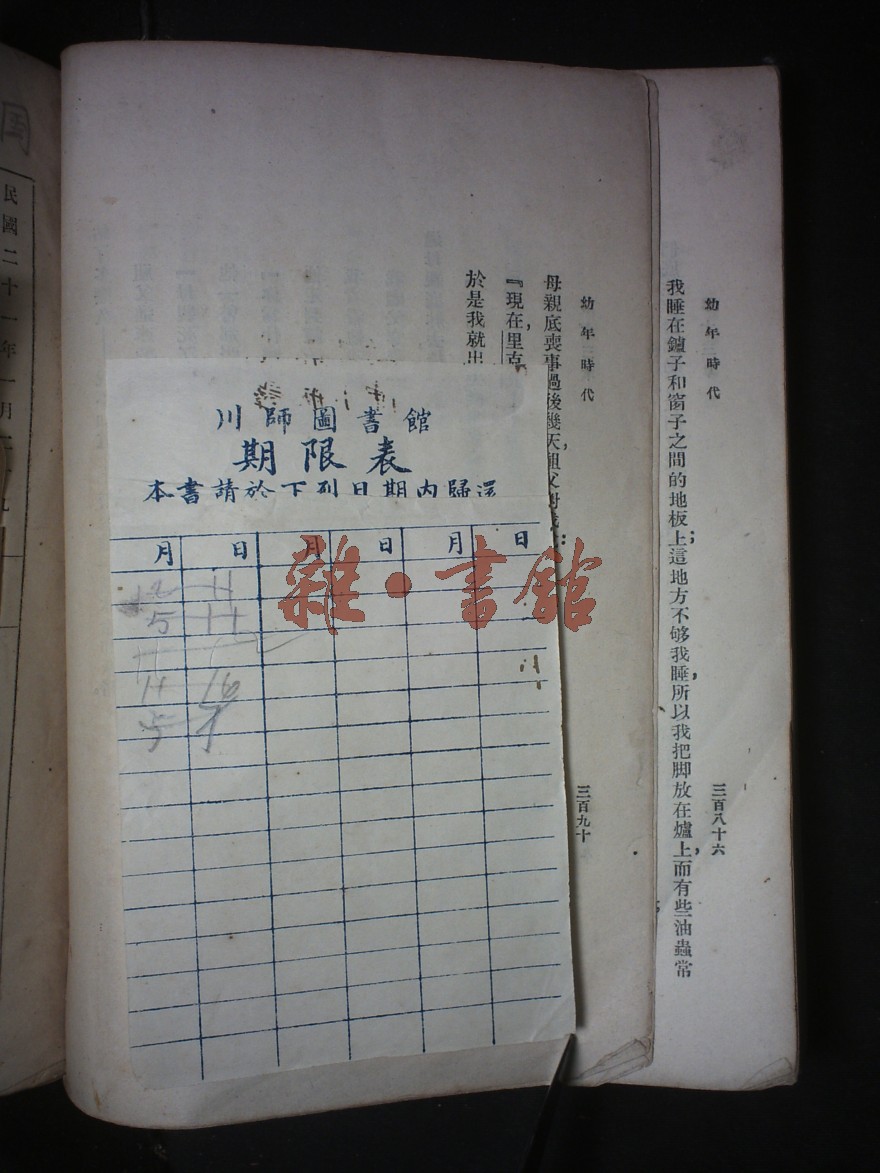 幼年時代
三百八十六
我睡在鑪子和窗子之間的地板上；這地方不够我睡，所以我把脚放在爐上，而有些油蟲常
幼年時代
三百九十
母親底喪事過後幾天，祖父對我
『現在，里克
於是我就出
川師圖書館
期限表
本書請於下列日期內歸還
月 日 月 日 月 日
12 11
5 11
11 16
5
雜·書館
国
民國二十一年一月二